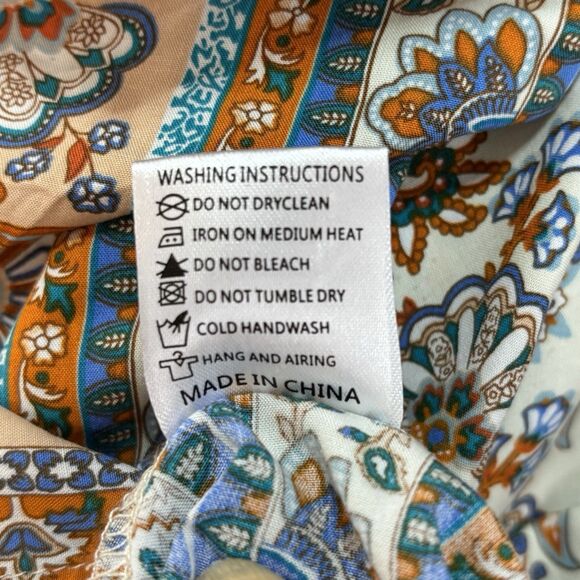 WASHING INSTRUCTIONS
DO NOT DRYCLEAN
IRON ON MEDIUM HEAT
DO NOT BLEACH
DO NOT TUMBLE DRY
COLD HANDWASH
HANG AND AIRING
MADE IN CHINA